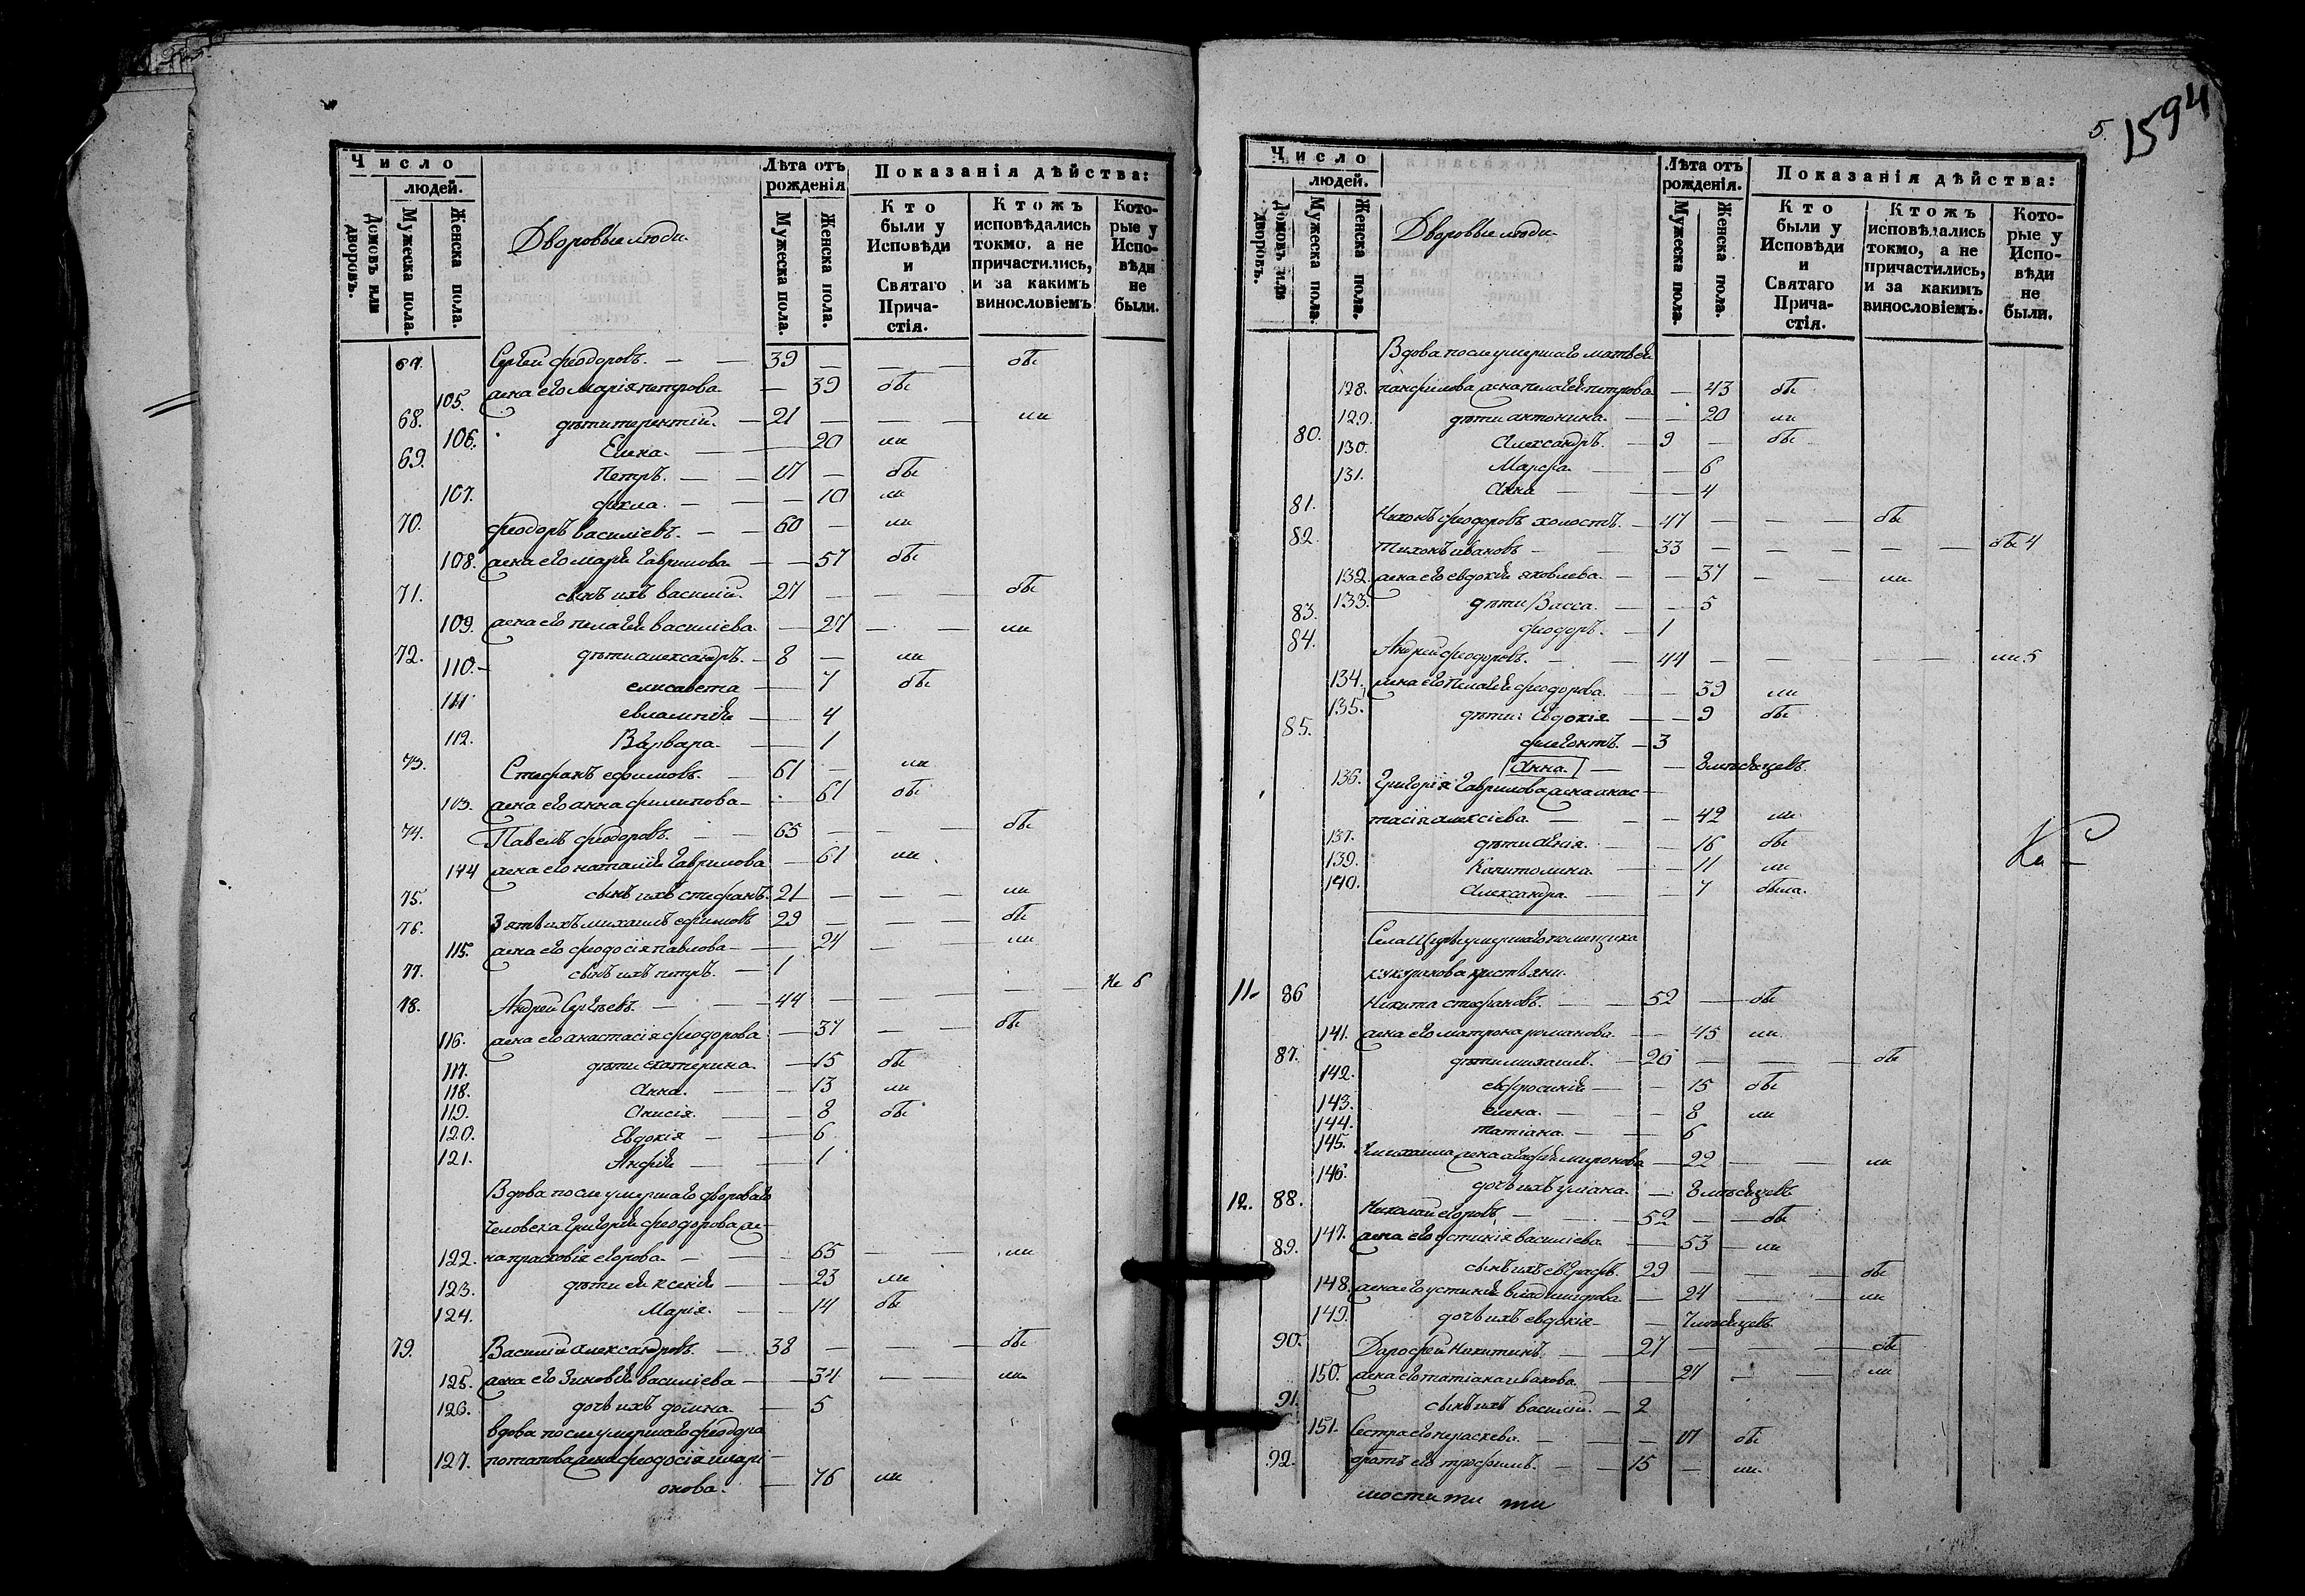 5. 1594
Число
людей.
Домовъ или дворовъ.
Мужеска пола.
Женска пола.
Дворовые люди
Лѣта отъ рожденія
Мужеска пола.
Женска пола.
Показанія дѣйства:
Кто были у Исповѣди и Святаго Причастія.
Ктожъ исповѣдались токмо, а не причастились, и за какимъ винословіемъ
Которые у Исповѣди не были.
67. Сергей феодоровъ. — — 39 — — — бы
105. жена его марія петрова — 39 бы
68. дѣти терентій. — 21 — — — ли
106. Елена. — — 20 ли
69. Петръ. — — 17 — бы
107. фекла. — — — 10 ли
70. феодоръ василіевъ. — — 60 — ли
108. жена его марія гаврилова — — 57 бы
71. сынъ ихъ василій. 27 — — — бы
109. жена его пелагія василіева — 27 — — ли
72. дѣти александръ. — 8 — ли
110. елисавета — 7 бы
111 евлампія — 4
112. Варвара. — 1
73. Стефанъ ефимовъ. — 61 — ли
113. жена его анна филипова — 61 бы
74. Павелъ феодоровъ. — — 65 — — — бы
114 жена его наталія гаврилова — 61 ли
75. сынъ ихъ стефанъ. 21 — — — ли
76. Зять ихъ михаилъ ефимовъ 29 — — — бы
115. жена его феодосія павлова — — 24 — — ли
77. сынъ ихъ петръ. — 1
78. Андрей Сергѣевъ. — — 44 — — — — не б
116. жена его анастасія феодорова — 37 — — бы
117. дѣти екатерина. — 15 бы
118. Анна. — — 13 ли
119. Анисія. — — 8 бы
120. Евдокія — — 6
121. Анфія — — 1
Вдова после умершаго двороваго
человека григорія феодорова же-
122. на прасковія егорова — — — 65 — — ли
123. дѣти ея ксенія — — 23 ли
124. Марія. — — 14 бы
79. Василій александровъ. — 38 — — — бы
125. жена его зиновія василіева — — 34 — — ли
126. дочь ихъ домна. — 5
вдова после умершаго феодора
127. потапова жена феодосія илари-
онова. — 76 ли
Число
людей.
Домовъ или дворовъ.
Мужеска пола.
Женска пола.
Дворовые люди
Лѣта отъ рожденія.
Мужеска пола.
Женска пола.
Показанія дѣйства:
Кто были у Исповѣди и Святаго Причастія.
Ктожъ исповѣдались токмо, а не причастились, и за какимъ винословіемъ.
Которые у Исповѣди не были.
Вдова после умершаго матвея
128. панфилова жена пелагія петрова — 43 бы
129. дѣти антонина. — — 20 ли
80. Александръ. — 9 — бы
130. Марфа. — — 6
131. Анна — — 4
81. Никонъ феодоровъ холостъ. — 47 — — — бы
82. Тихонъ ивановъ — — 33 — — — — — бы 4
132. жена его евдокія яковлева. — — 37 — — ли
133. дѣти Васса. — — 5
83. феодоръ. — 1
84. Андрей феодоровъ. — — 44 — — — — ли 5
134. жена его Пелагія феодорова. — — 39 ли
135. дѣти: Евдокія — — 9 бы
85. флегонтъ. — 3
Анна. — — 8 мѣсяцевъ
136. Григорія Гаврилова жена анас-
тасія алексіева. — — — 42 ли
137. дѣти агнія. — — 16 бы
139. Капитолина. — — 11 ли
140. Александра. — — 7 была.
Села умершаго помещика
крестьяни.
11. 86 Никита стефановъ. — — 52 — — бы
141. жена его матрона романова. — — 45 ли
87. дѣти михаилъ. — 26 — — — бы
142. евфросинія — — 15 бы
143. елена. — — 8 ли
144. татіана. — — 6
145. михаила жена агафія миронова — 22 — — ли
146. дочь ихъ уліана. — 8 мѣсяцевъ
12. 88. Николай егоровъ. — — 52 — — бы
147. жена его устинія василіева — 53 — ли
89. сынъ ихъ евграфъ. 29 — — — бы
148. жена его устинія владимирова — 24 — — ли
149. дочь ихъ евдокія — — 7 мѣсяцевъ
90. Дарофей Никитинъ. — 27 — — — бы
150. жена его татіана иванова. — — 27 — — ли
91. сынъ ихъ василій. — 2
151. Сестра его параскева. — — — 17 бы
92. братъ его трофимъ. — — 15 — ли.